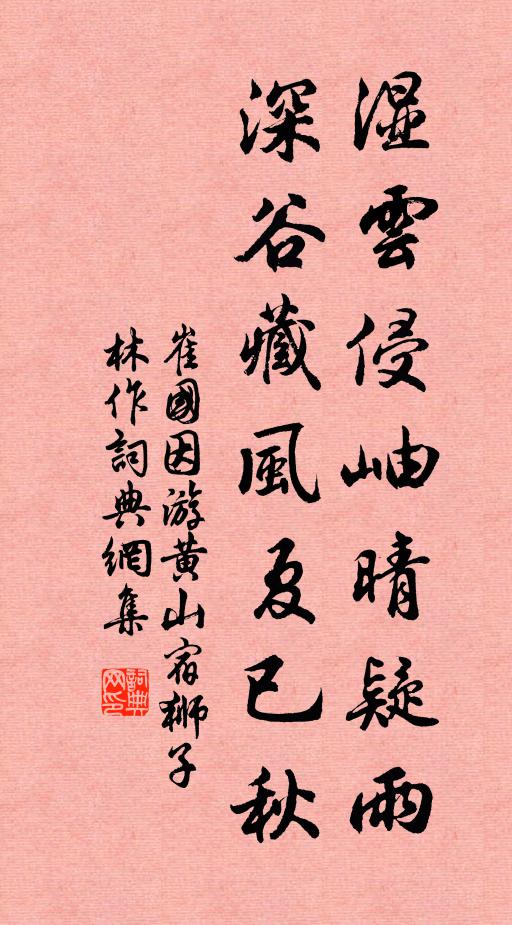 湿雲侵岫晴疑雨
深谷藏風夏已秋
崔國因游黄山宿獅子
林作詞典網集
詞典网印